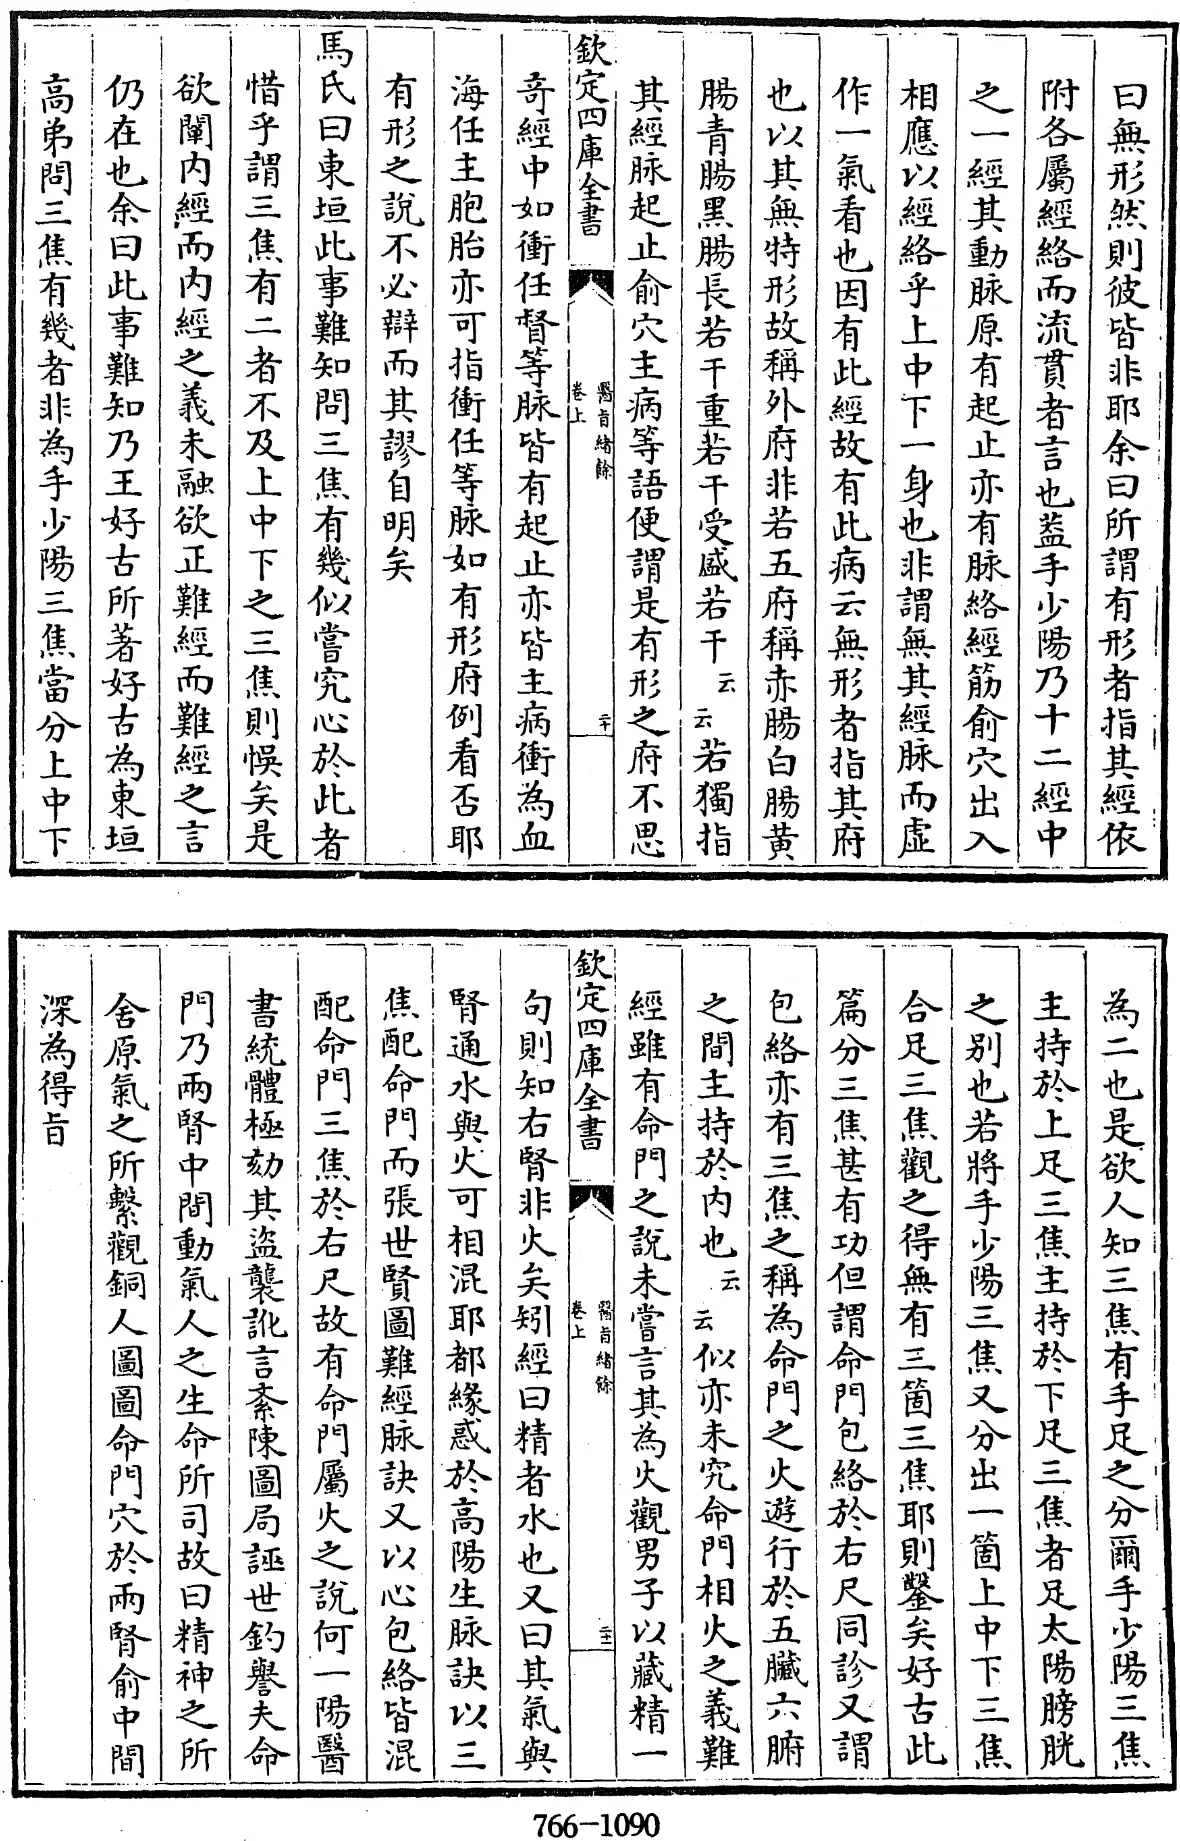 曰無形然則彼皆非耶余曰所謂有形者指其經依
附各屬經絡而流貫者言也葢手少陽乃十二經中
之一經其動脉原有起止亦有脉絡經筋俞穴出入
相應以經絡乎上中下一身也非謂無其經脉而虛
作一氣看也因有此經故有此病云無形者指其府
也以其無特形故稱外府非若五府稱赤腸白腸黃
腸青腸黑腸長若干重若干受盛若干云云若獨指
其經脉起止俞穴主病等語便謂是有形之府不思
欽定四庫全書
醫旨緒餘
卷上
二十
奇經中如衝任督等脉皆有起止亦皆主病衝為血
海任主胞胎亦可指衝任等脉如有形府例看否耶
有形之說不必辯而其謬自明矣
馬氏曰東垣此事難知問三焦有幾似嘗究心於此者
惜乎謂三焦有二者不及上中下之三焦則悞矣是
欲闡内經而内經之義未融欲正難經而難經之言
仍在也余曰此事難知乃王好古所著好古為東垣
高弟問三焦有幾者非為手少陽三焦當分上中下
為二也是欲人知三焦有手足之分爾手少陽三焦
主持於上足三焦主持於下足三焦者足太陽膀胱
之别也若將手少陽三焦又分出一箇上中下三焦
合足三焦觀之得無有三箇三焦耶則鑿矣好古此
篇分三焦甚有功但謂命門包絡於右尺同診又謂
包絡亦有三焦之稱為命門之火遊行於五臟六腑
之間主持於内也云云似亦未究命門相火之義難
經雖有命門之說未嘗言其為火觀男子以藏精一
欽定四庫全書
醫旨緒餘
卷上
二十一
句則知右腎非火矣矧經曰精者水也又曰其氣與
腎通水與火可相混耶都緣惑於高陽生脉訣以三
焦配命門而張世賢圖難經脉訣又以心包絡皆混
配命門三焦於右尺故有命門屬火之說何一陽醫
書統體極劾其盜襲訛言紊陳圖局誣世釣譽夫命
門乃兩腎中間動氣人之生命所司故曰精神之所
舍原氣之所繫觀銅人圖圖命門穴於兩腎俞中間
深為得旨
766-1090